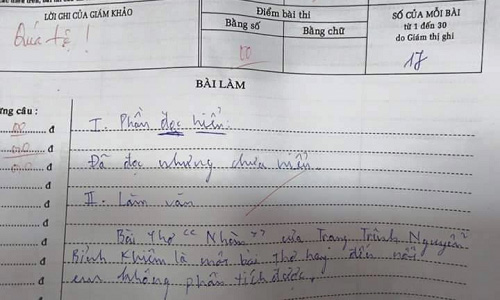 LỜI GHI CỦA GIÁM KHẢO
Quá tệ!
Điểm bài thi
Bằng số
Bằng chữ
00
SỐ CỦA MỖI BÀI
từ 1 đến 30
do Giám thị ghi
17
BÀI LÀM
ng câu :
00 đ
đ
đ
đ
đ
đ
đ
đ
I. Phần đọc hiểu:
Đã đọc nhưng chưa hiểu
II. Làm văn
Bài thơ "Nhàn" của Trạng Trình Nguyễn
Bỉnh Khiêm là một bài thơ hay đến nỗi
em không phân tích được.